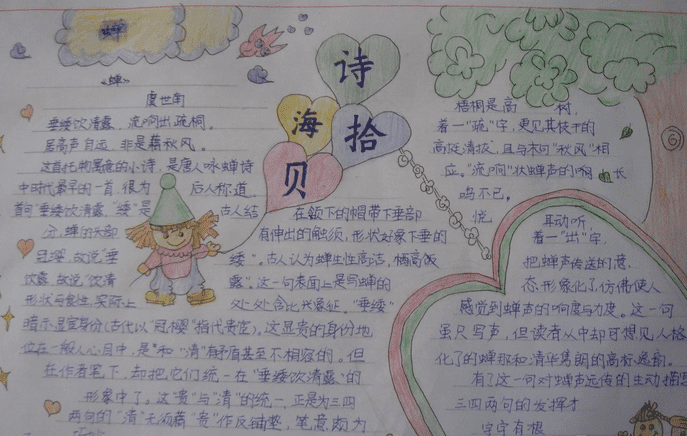 诗
海
拾
贝
蝉
《蝉》
虞世南
垂緌饮清露，流响出疏桐。
居高声自远，非是藉秋风。
这首托物寓意的小诗，是唐人咏蝉诗
中时代最早的一首，很为 后人称道。
首句“垂緌饮清露，“緌”是 古人结
在颔下的帽带下垂部
分，蝉的头部 有伸出的触须，形状好象下垂的
缨”。古人认为蝉生性高洁，栖高饮
饮露，故说“饮清 露”。这一句表面上是写蝉的
形状与食性，实际上 处处含比兴象征，“垂緌”
暗示显宦身份(古代以“冠缨”指代贵宦)。这显贵的身份地
位在一般人心目中，是和“清”有矛盾甚至不相容的。但
在作者笔下，却把它们统一在“垂緌饮清露”的
形象中了。这“贵”与“清”的统一，正是为三四
两句的“清”无须藉“贵”作反铺垫，笔意颇为
梧桐是高 树，
着一“疏”字，更见其枝干的
高挺清拔，且与末句“秋风”相
应。“流响”状蝉声的 长
鸣不已。
悦 耳动听，
着一“出”字，
把蝉声传送的意
态形象化了，仿佛使人
感觉到蝉声的响度与力度。这一句
虽只写声，但读者从中却可想见人格
化了的蝉那和清华隽朗的高标逸韵。
有了这一句对蝉声远传的生动描
三四两句的发挥才
字字有根